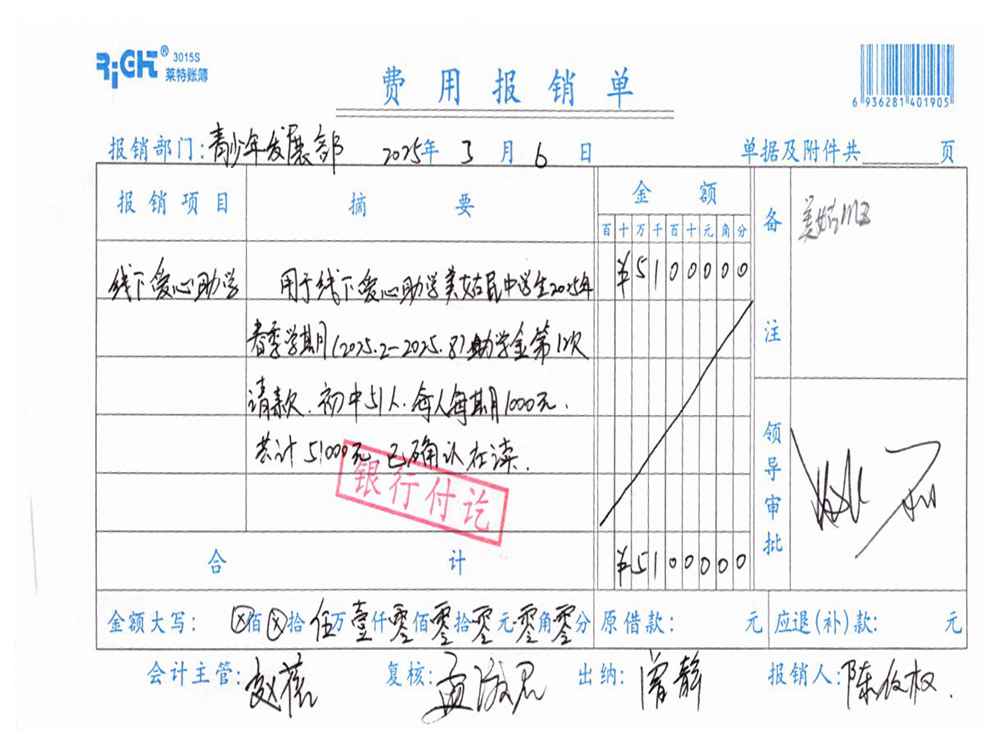 RiGHT® 3015S
莱特账簿
费用报销单
6 936281 401905
报销部门:青少年发展部 2025年 3 月 6 日 单据及附件共 页
报销项目 摘要 金额 备注
百十万千百十元角分
美姑MZ
线下爱心助学 用于线下爱心助学美姑民中学生2025年 ¥5100000
春季学期(2025.2-2025.8)助学金第1次
请款、初中51人.每人每期1000元.
共计51000元.已确认在读.
银行付讫
领导审批
合计 ¥5100000
金额大写: ⊗佰⊗拾伍万壹仟零佰零拾零元零角零分 原借款: 元 应退(补)款: 元
会计主管:赵蓓 复核:孟 出纳:曾静 报销人:陈